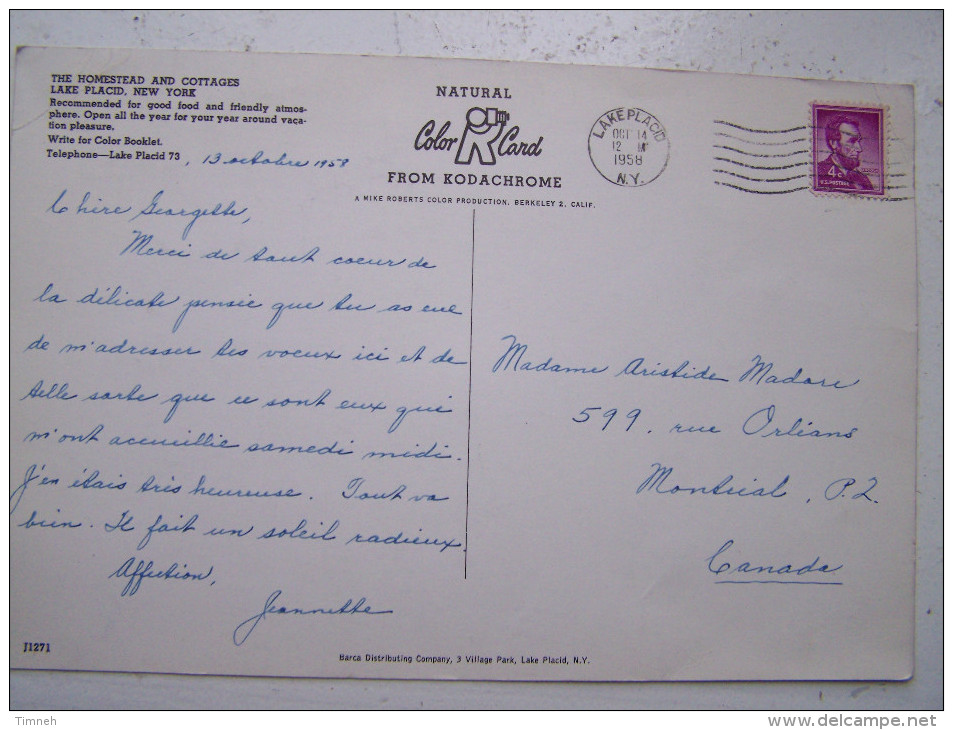 THE HOMESTEAD AND COTTAGES
LAKE PLACID, NEW YORK
Recommended for good food and friendly atmos-
phere. Open all the year for your year around vaca-
tion pleasure.
Write for Color Booklet.
Telephone—Lake Placid 73
, 13 octobre 1958
NATURAL
Color Card
FROM KODACHROME
A MIKE ROBERTS COLOR PRODUCTION, BERKELEY 2, CALIF.
LAKE PLACID
OCT 14
12 M
1958
N.Y.
4¢
U.S. POSTAGE
Chère Georgette,
Merci de tout coeur de
la délicate pensée que tu as eue
de m'adresser tes voeux ici et de
telle sorte que ce sont eux qui
m'ont accueillie samedi midi.
J'en étais très heureuse. Tout va
bien. Il fait un soleil radieux.
Affection,
Jeannette
Madame Aristide Madore
599, rue Orléans
Montréal, P.Q.
Canada
J1271
Barca Distributing Company, 3 Village Park, Lake Placid, N.Y.
Timneh
www.delcampe.net